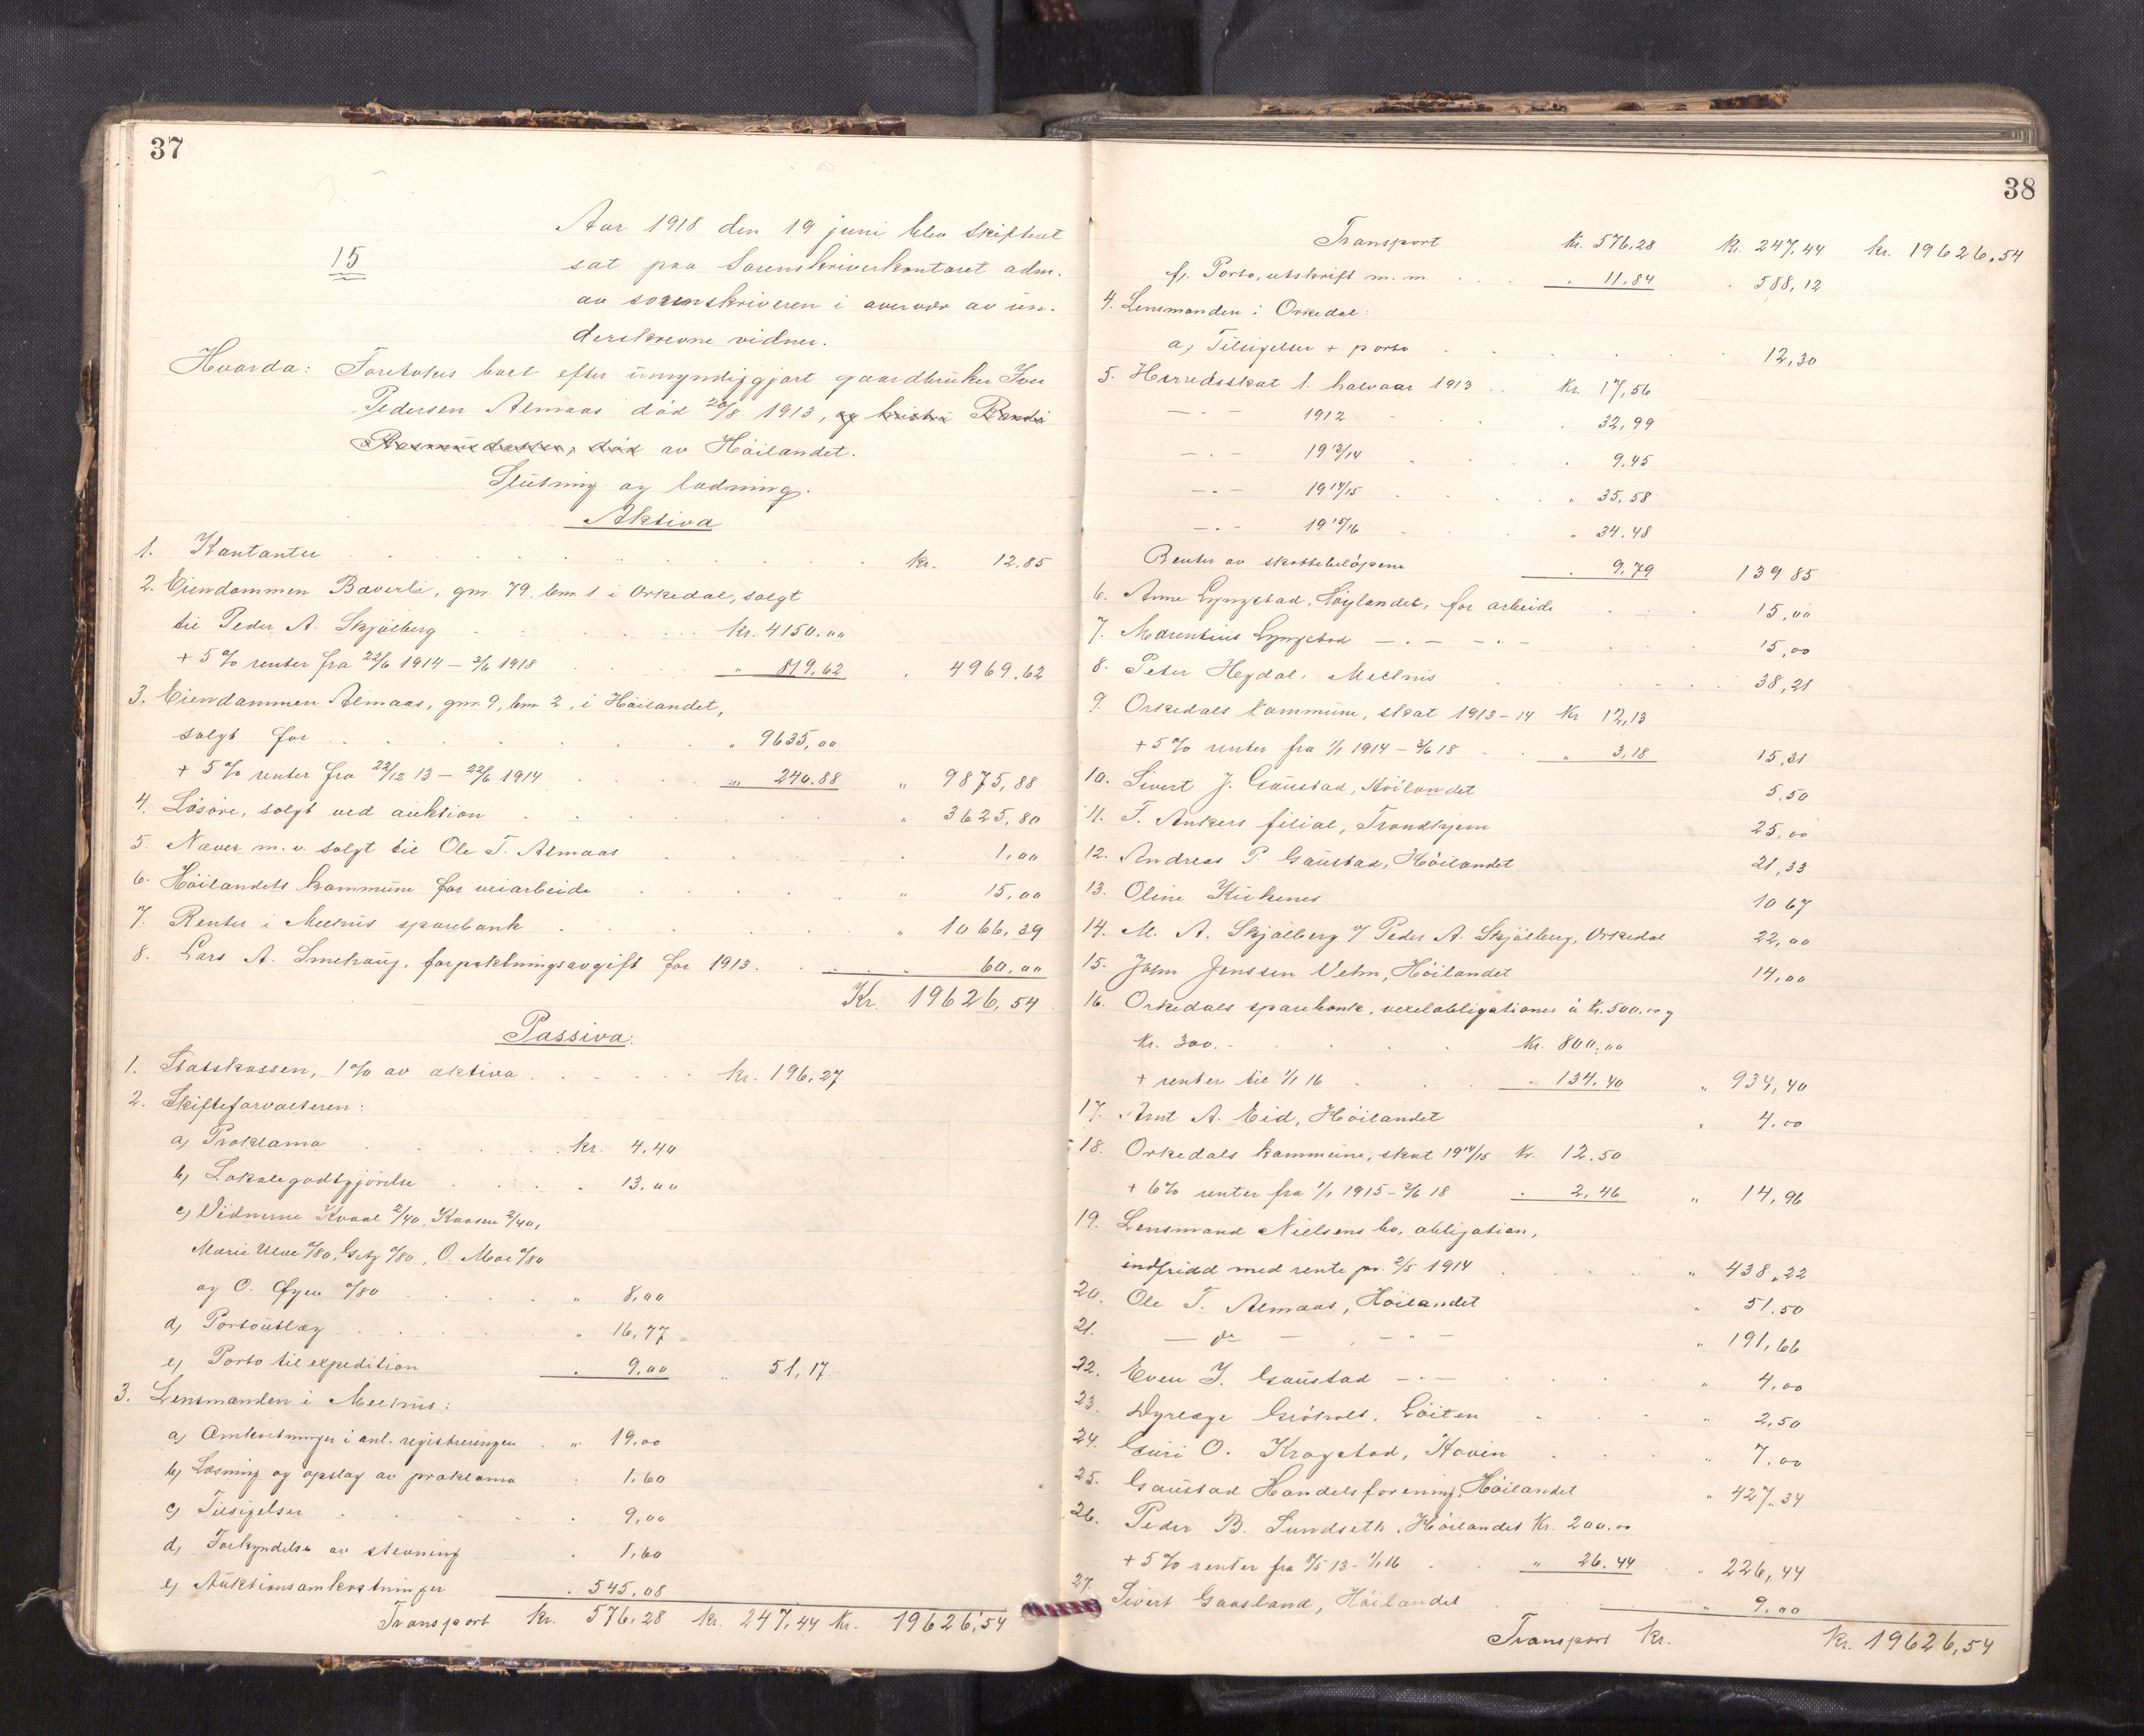 37
15
Aar 1918 den 19 juni blev skifteret
sat paa Sorenskriverkontoret adm.
av sorenskriveren i overvær av un-
derskrevne vidner.
Hvorda: Foretoges boet efter umyndiggjort gaardbruker Iver
Pedersen Almaas död 20/8 1913, og hustru Randi
Rasmusdatter, död av Höilandet.
Slutning og lodning.
Aktiva
1. Kontanter kr. 12.85
2. Eiendommen Bæverli, gnr. 79, bnr 1 i Orkedal, solgt
til Peder A. Skjölberg kr. 4150.00
+ 5% renter fra 22/6 1914 – 3/6 1918 " 819,62 " 4969.62
3. Eiendommen Almaas, gnr 9, bnr 2, i Höilandet,
solgt for " 9635,00
+ 5% renter fra 22/12 13 – 22/6 1914 " 240.88 " 9875,88
4. Lösöre, solgt ved auktion " 3625,80
5. Næver m.v. solgt til Ole T. Almaas " 1,00
6. Höilandets kommune for veiarbeide " 15,00
7. Renter i Melhus sparebank " 1066,39
8. Lars A. Smehaug, forpaktningsavgift for 1913. " 60,00
Kr. 19626,54
Passiva:
1. Statskassen, 1% av aktiva kr. 196,27
2. Skifteforvalteren:
a) Proklama kr. 4,40
b) Lokalegodtgjörelse " 13.00
c) Vidnerne Kvaal 2/40, Kaasen 2/40,
Marie Ulve 0/80, Getz 0/80, O. Moe 0/80
og O. Øyen 0/80 " 8,00
d) Portoutlæg " 16,77
e) Porto til expedition " 9,00 " 51,17
3. Lensmanden i Melhus:
a) Omkostninger i anl. registreringen " 19,00
b) Læsning og opslag av proklama : 1,60
c) Tilsigelser . 9,00
d) Forkyndelse av stevning . 1,60
e) Auktionsomkostninger . 545,08
Transport kr. 576,28 kr. 247,44 kr. 19626,54
38
Transport kr. 576,28 kr. 247,44 kr. 19626,54
f) Porto, utskrift m. m. " 11.84 . 588,12
4. Lensmanden i Orkedal:
a) Tilsigelser + porto 12,30
5. Herredsskat 1. halvaar 1913 kr. 17,56
— . — 1912 . 32,99
— . — 1913/14 . 9,45
— . — 1914/15 " 35,58
— . — 1915/16 " 34.48
Renter av skattebelöpene . 9.79 139 85
6. Anne Lyngstad, Höylandet, for arbeide 15,00
7. Marentius Lyngstad — . — — . — 15,00
8. Peter Heydal, Melhus 38,21
9. Orkedals kommune, skat 1913–14 kr 12,13
+ 5% renter fra 1/1 1914 – 3/6 18 " 3,18 15,31
10. Sivert J. Gaustad, Höilandet 5,50
11. F. Ankers filial, Trondhjem 25,00
12. Andreas P. Gaustad, Höilandet 21,33
13. Oline Kirkenes 10 67
14. M. A. Skjölberg v/ Peder A. Skjölberg, Orkedal 22,00
15. John Jenssen Vehn, Höilandet 14,00
16. Orkedals sparebank, vexelobligationer à kr. 500.00 og
kr. 300.- kr. 800,00
+ renter til 1/1 16 " 134.40 " 934,40
17. Arnt A. Eid, Höilandet . 4.00
18. Orkedals kommune, skat 1914/15 kr. 12.50
+ 6% renter fra 1/1 1915 – 3/6 18 . 2,46 " 14,96
19. Lensmand Nielsens bo, obligation,
indfridd med rente pr. 2/5 1914 " 438,22
20. Ole T. Almaas, Höilandet " 51.50
21. — do — . — " — " 191,66
22. Even J. Gaustad — . — " 4,00
23. Dyrlæge Gröholt, Löiten " 2,50
24. Guri O. Krogstad, Hovin " 7.00
25. Gaustad Handelsforening, Höilandet " 427,34
26. Peder B. Sundseth, Höilandet kr. 200.00
+ 5% renter fra 8/5 13 – 1/1 16 " 26.44 . 226,44
27. Sivert Gaasland, Höilandet " 9,00
Transport kr. kr. 19626,54